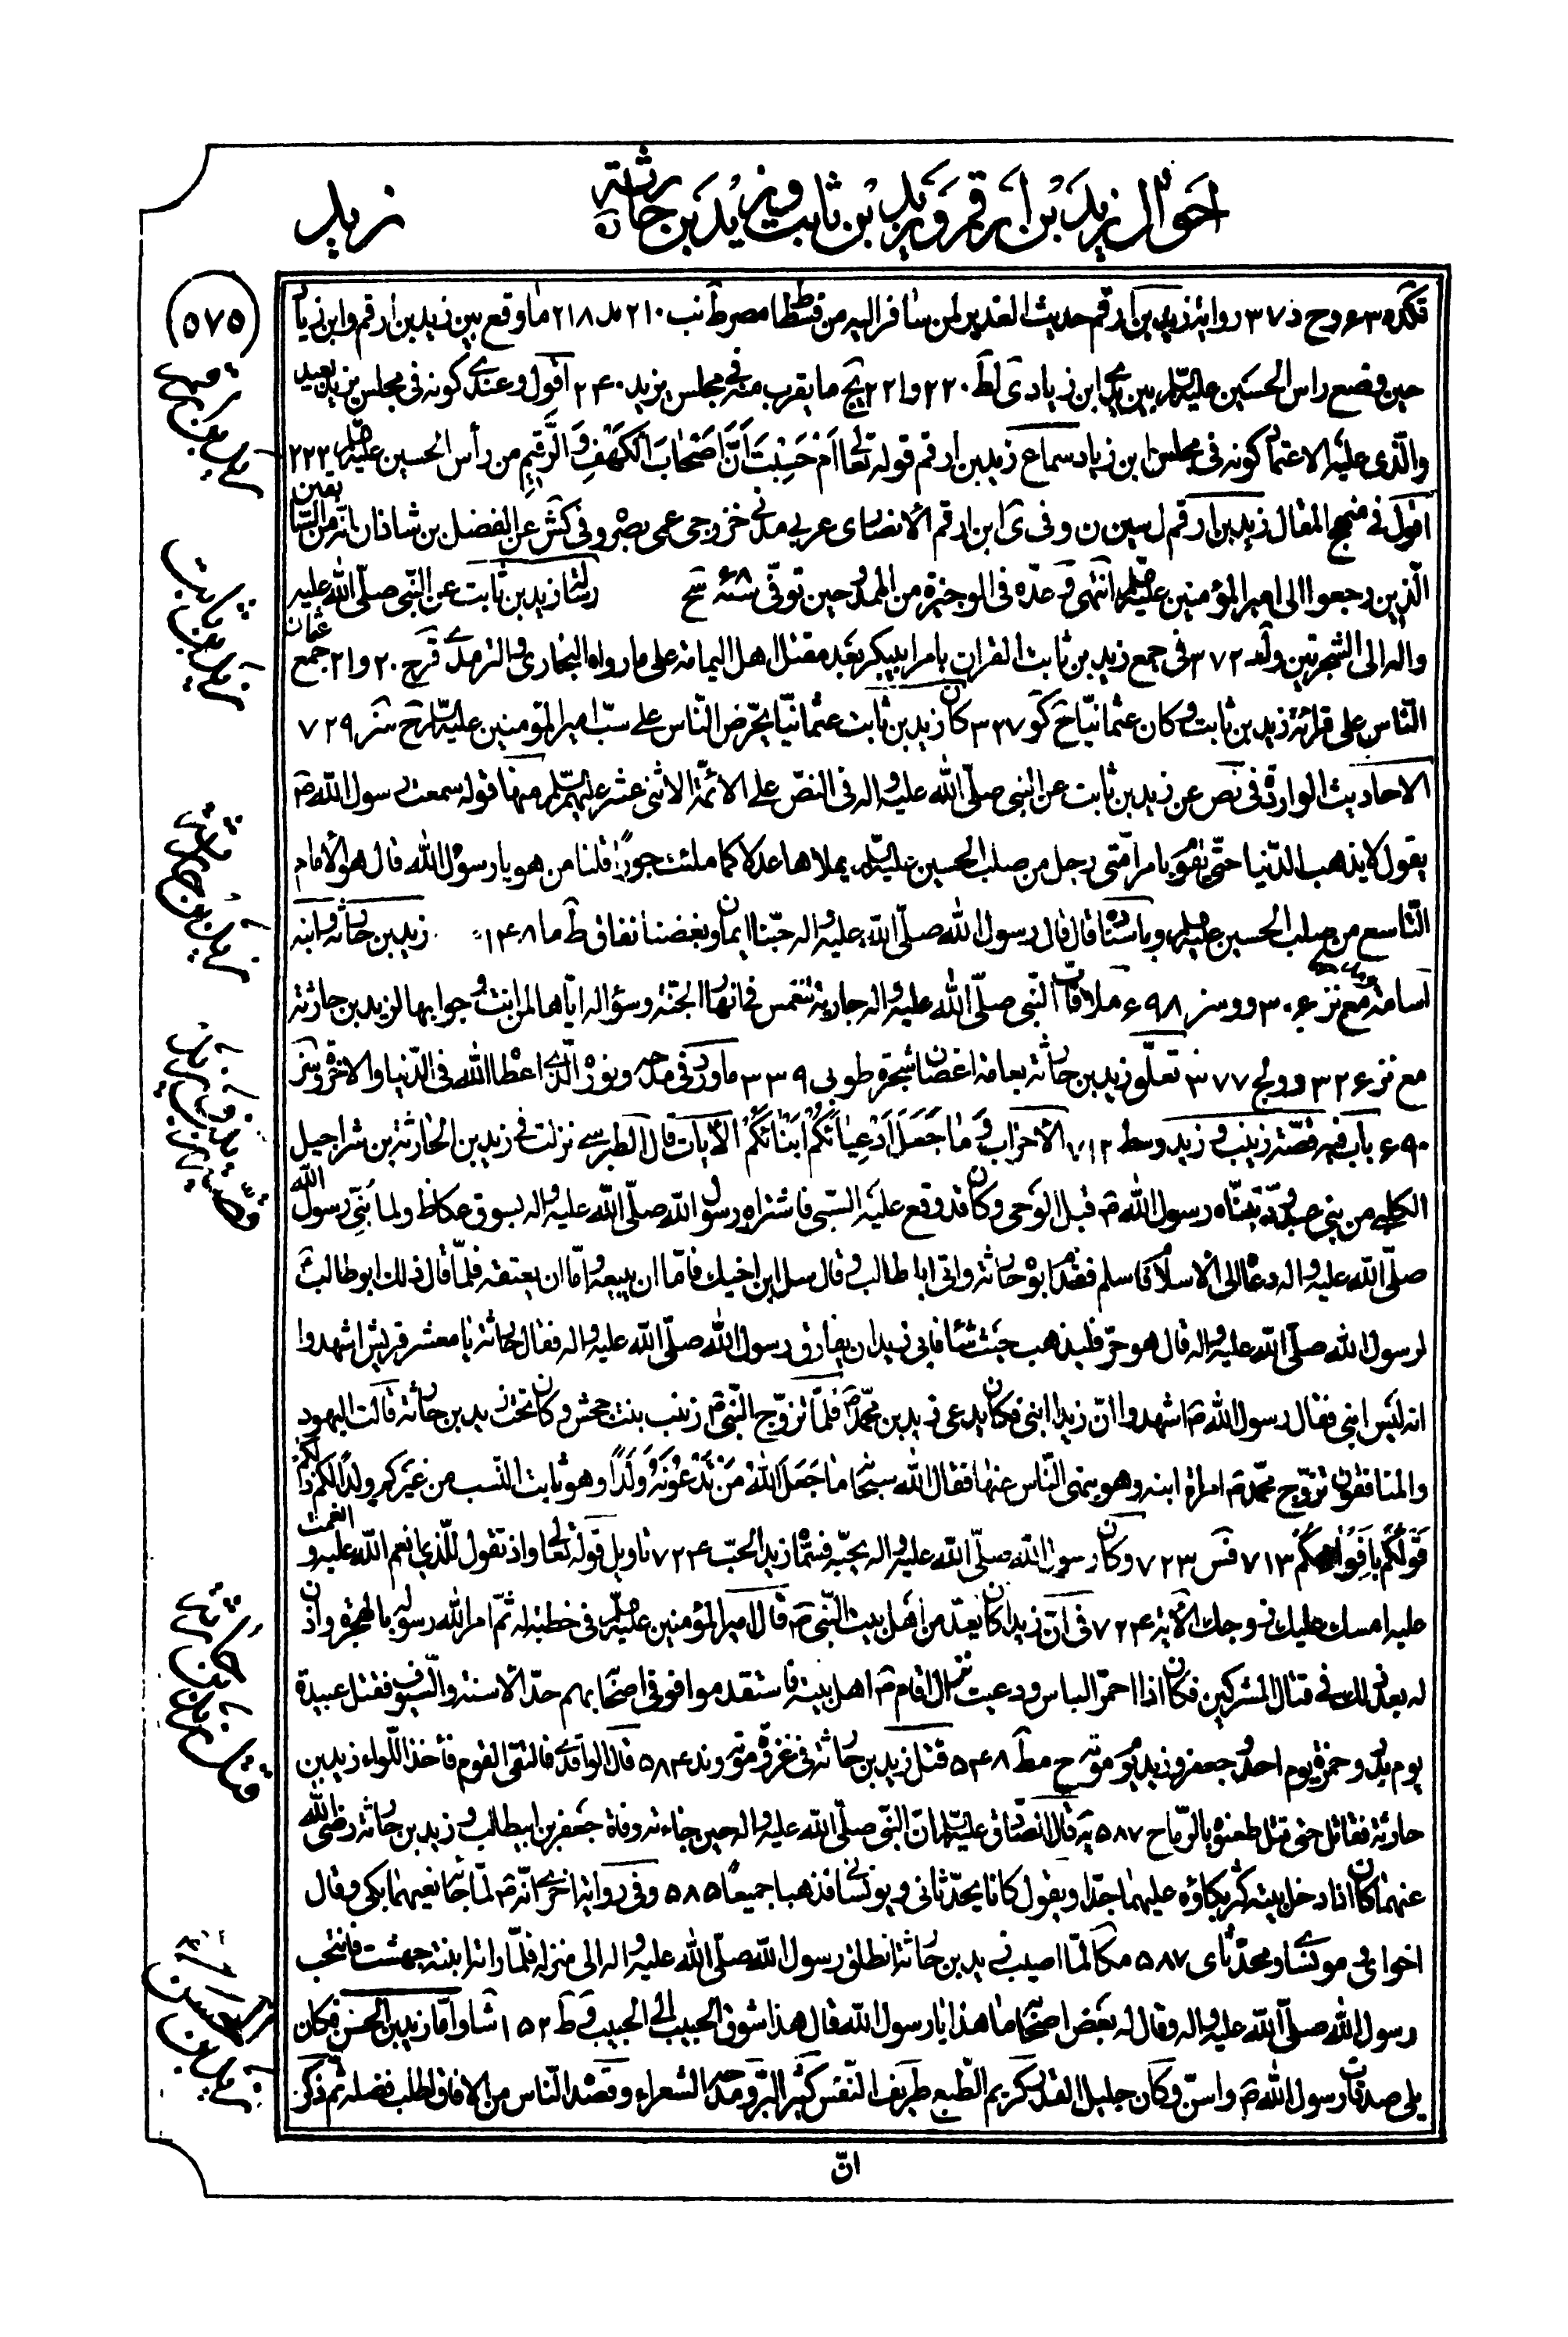 احوال زيد بن ارقم وزيد بن ثابت وزيد بن حارثة
زيد
(٥٧٥)
رواية زيد بن ارقم حديث الغدير لمن سافر اليه من فسطاط مصر ط نب ٢١٠ ٢١٨ ما وقع بين زيد بن ارقم وابن زياد
حين وضع راس الحسين عليه السلم بين يدي ابن زياد ى لط ٢٢٠ و ٢٢١ يج ما يقرب منه في مجلس يزيد ٢٤٠ اقول وعندي كونه في مجلس يزيد بعيد
والذي عليه الاعتماد كونه في مجلس ابن زياد سماع زيد بن ارقم قوله تعالى اَمْ حَسِبْتَ اَنَّ اَصْحابَ الْكَهْفِ وَالرَّقيمِ من رأس الحسين عليه السلم ٢٢٢
اقول في منهج المقال زيد بن ارقم ل سين ن وفي ى ابن ارقم الانصاري عربي مدني خزرجي عمي بصره وفي كش عن الفضل بن شاذان انه من السابقين
الذين رجعوا الى امير المؤمنين عليه السلم انتهى وعده في الوجيزة من الممدوحين توفي سنة ٦٨ سح رثا زيد بن ثابت عن النبي صلّى الله عليه
واله الى الشجرتين ٣٧٢ في جمع زيد بن ثابت القران بامر ابيبكر بعد مقتل اهل اليمامة على ما رواه البخاري والترمذي قرح ٢٠ و ٢١ جمع عثمان
الناس على قرائة زيد بن ثابت وكان عثمانيا ح كو ٣٢٧ كان زيد بن ثابت عثمانيّا يحرّض الناس على سبّ امير المؤمنين عليه السلم ح شر ٧٢٩
الاحاديث الواردة في نص عن زيد بن ثابت عن النبي صلّى الله عليه واله في النصّ على الائمّة الاثنى عشر عليهم السلم منها قوله سمعت رسول الله ص
يقول لا يذهب الدّنيا حتّى يقوم بامر امّتى رجل من صلب الحسين عليه السلم يملاها عدلا كما ملئت جورا قلنا من هو يا رسول الله قال هو الامام
التّاسع من صلب الحسين عليه السلم وباسناده قال قال رسول الله صلّى الله عليه واله حبّنا ايمان وبغضنا نفاق ط ما ١٤٨ زيد بن حارثة وابنه
اسامة مع نز ٣٠٦ و و سز ٦٩٨ ملاقات النبي صلّى الله عليه واله جارية تنغمس في انهار الجنّة وسؤاله اياها لمن انت وجوابها لزيد بن حارثة
مع نز ٣٢٦ و و لج ٣٧٧ تعلّق زيد بن حارثة بعامة اغصان شجرة طوبى ٣٣٩ ما ورد في مدحه ونوره الّذي اعطاه الله في الدّنيا والاخرة و سز
٦٩٠ باب فيه قصّة زينب وزيد و سط ٧١٢ الاحزاب وَ ما جَعَلَ اَدْعِياءَكُمْ اَبْنائَكُمْ الآيات قال الطبرسي نزلت في زيد بن الحارثة بن شراحيل
الكلبي من بني عبد ود تبنّاه رسول الله ص قبل الوحي وكان قد وقع عليه السّبي فاشتراه رسول الله صلّى الله عليه واله بسوق عكاظ ولما نبّئ رسول الله
صلّى الله عليه واله دعاه الى الاسلام فاسلم فقدم ابوه حارثة واتى ابا طالب وقال سل ابن اخيك فامّا ان يبيعه وامّا ان يعتقه فلمّا قال ذلك ابو طالب
لرسول الله صلّى الله عليه واله قال هو حرّ فليذهب حيث شاء فابى زيد ان يفارق رسول الله صلّى الله عليه واله فقال حارثة يا معشر قريش اشهدوا
انه ليس ابني فقال رسول الله ص اشهدوا انّ زيدا ابني فكان يدعى زيد بن محمّد ص فلمّا تزوّج النّبي ص زينب بنت جحش وكان تحت زيد بن حارثة قالت اليهود
والمنافقون تزوّج محمّد ص امراة ابنه وهو ينهى النّاس عنها فقال الله سبحانه ما جعل الله من تدعونه ولدا وهو ثابت النّسب من غيركم ولدا لكم ذلكم
قَوْلُكُمْ بِاَفْواهِكُمْ ٧١٣ فس ٧٢٣ وكان رسول الله صلّى الله عليه واله يحبّه فسمّاه زيد الحبّ ٧٢٤ تاويل قوله تعالى واذ تقول للّذي انعم الله عليه وانعمت
عليه امسك عليك زوجك الآية ٧٢٤ في انّ زيدا كان يعدّ من اهل بيت النّبي ص قال امير المؤمنين عليه السلم في خطبة له ثمّ امر الله رسوله بالهجرة واذن
له بعد ذلك في قتال المشركين فكان اذا احمرّ الباس ودعيت نزال اقام ص اهل بيته فاستقدموا فوقى اصحابه بهم حدّ الاسنة والسّيوف فقتل عبيدة
يوم بدر وحمزة يوم احد وجعفر وزيد يوم موته ح مط ٥٤٨ قتل زيد بن حارثة في غزوة موته و ند ٥٨٤ قال الواقدي فالتقى القوم فاخذ اللّواء زيد بن
حارثة فقاتل حتى قتل طعنوه بالرّماح ٥٨٧ يه قال الصّادق عليه السلم انّ النبي صلّى الله عليه واله حين جائته وفاة جعفر بن ابيطالب وزيد بن حارثة رضى الله
عنهما كان اذا دخل بيته كثر بكاؤه عليهما جدّا ويقول كانا يحدّثاني ويونساني فذهبا جميعا ٥٨٥ وفي رواية اخرى انّه ص لمّا جائه نعيهما بكى وقال
اخواي ومونساي ومحدّثاي ٥٨٧ مكا لمّا اصيب زيد بن حارثة انطلق رسول الله صلّى الله عليه واله الى منزله فلمّا راته ابنته جهشت فانتحب
رسول الله صلّى الله عليه واله وقال له بعض اصحابه ما هذا يا رسول الله قال هذا شوق الحبيب الى الحبيب ى ط ١٥٢ شا وامّا زيد بن الحسن فكان
يلي صدقات رسول الله ص واسنّ وكان جليل القدر كريم الطّبع ظريف النّفس كثير البرّ ومدحه الشعراء وقصده النّاس من الافاق لطلب فضله ثم ذكر
انّ
زيد بن ارقم
زيد بن ثابت
زيد بن حارثة
قتل زيد بن حارثة
زيد بن الحسن